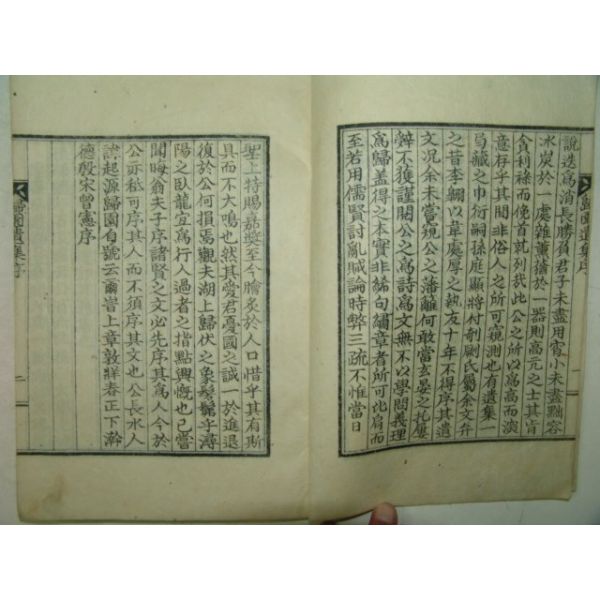 說迭爲消長勝負君子未盡用宵小未盡黜容
冰炭於一處雜薰蕕於一器則高亢之士其肯
貪利祿而俛首就列哉此公之所以爲高而演
意存乎其間非俗人之所可窺測也有遺集一
局藏之巾衍嗣孫庭顯將付剞劂氏屬余文弁
之昔李翶以韋處厚之執友十年不得序其遺
文况余未嘗窺公之藩籬何敢當玄晏之托屢
辤不獲謹閱公之爲詩爲文無不以學問義理
爲歸盖得之本實非絺句繡章者所可比肩而
至若用儒賢討亂賊論時弊三疏不惟當日
歸園遺集序 一
聖上特賜嘉奬至今膾炙於人口惜乎其有斯
具而不大鳴也然其愛君憂國之誠一於進退
復於公何損焉觀夫湖上歸伏之象髣髴乎潯
陽之臥龍宜爲行人過者之指點興慨也已嘗
聞晦翁夫子序諸賢之文必先序其爲人今於
公亦私可序其人而不須序其文也公長水人
諱起源歸園自號云爾旹上章敦牂春正下澣
德殷宋曾憲序
歸園遺集序 二